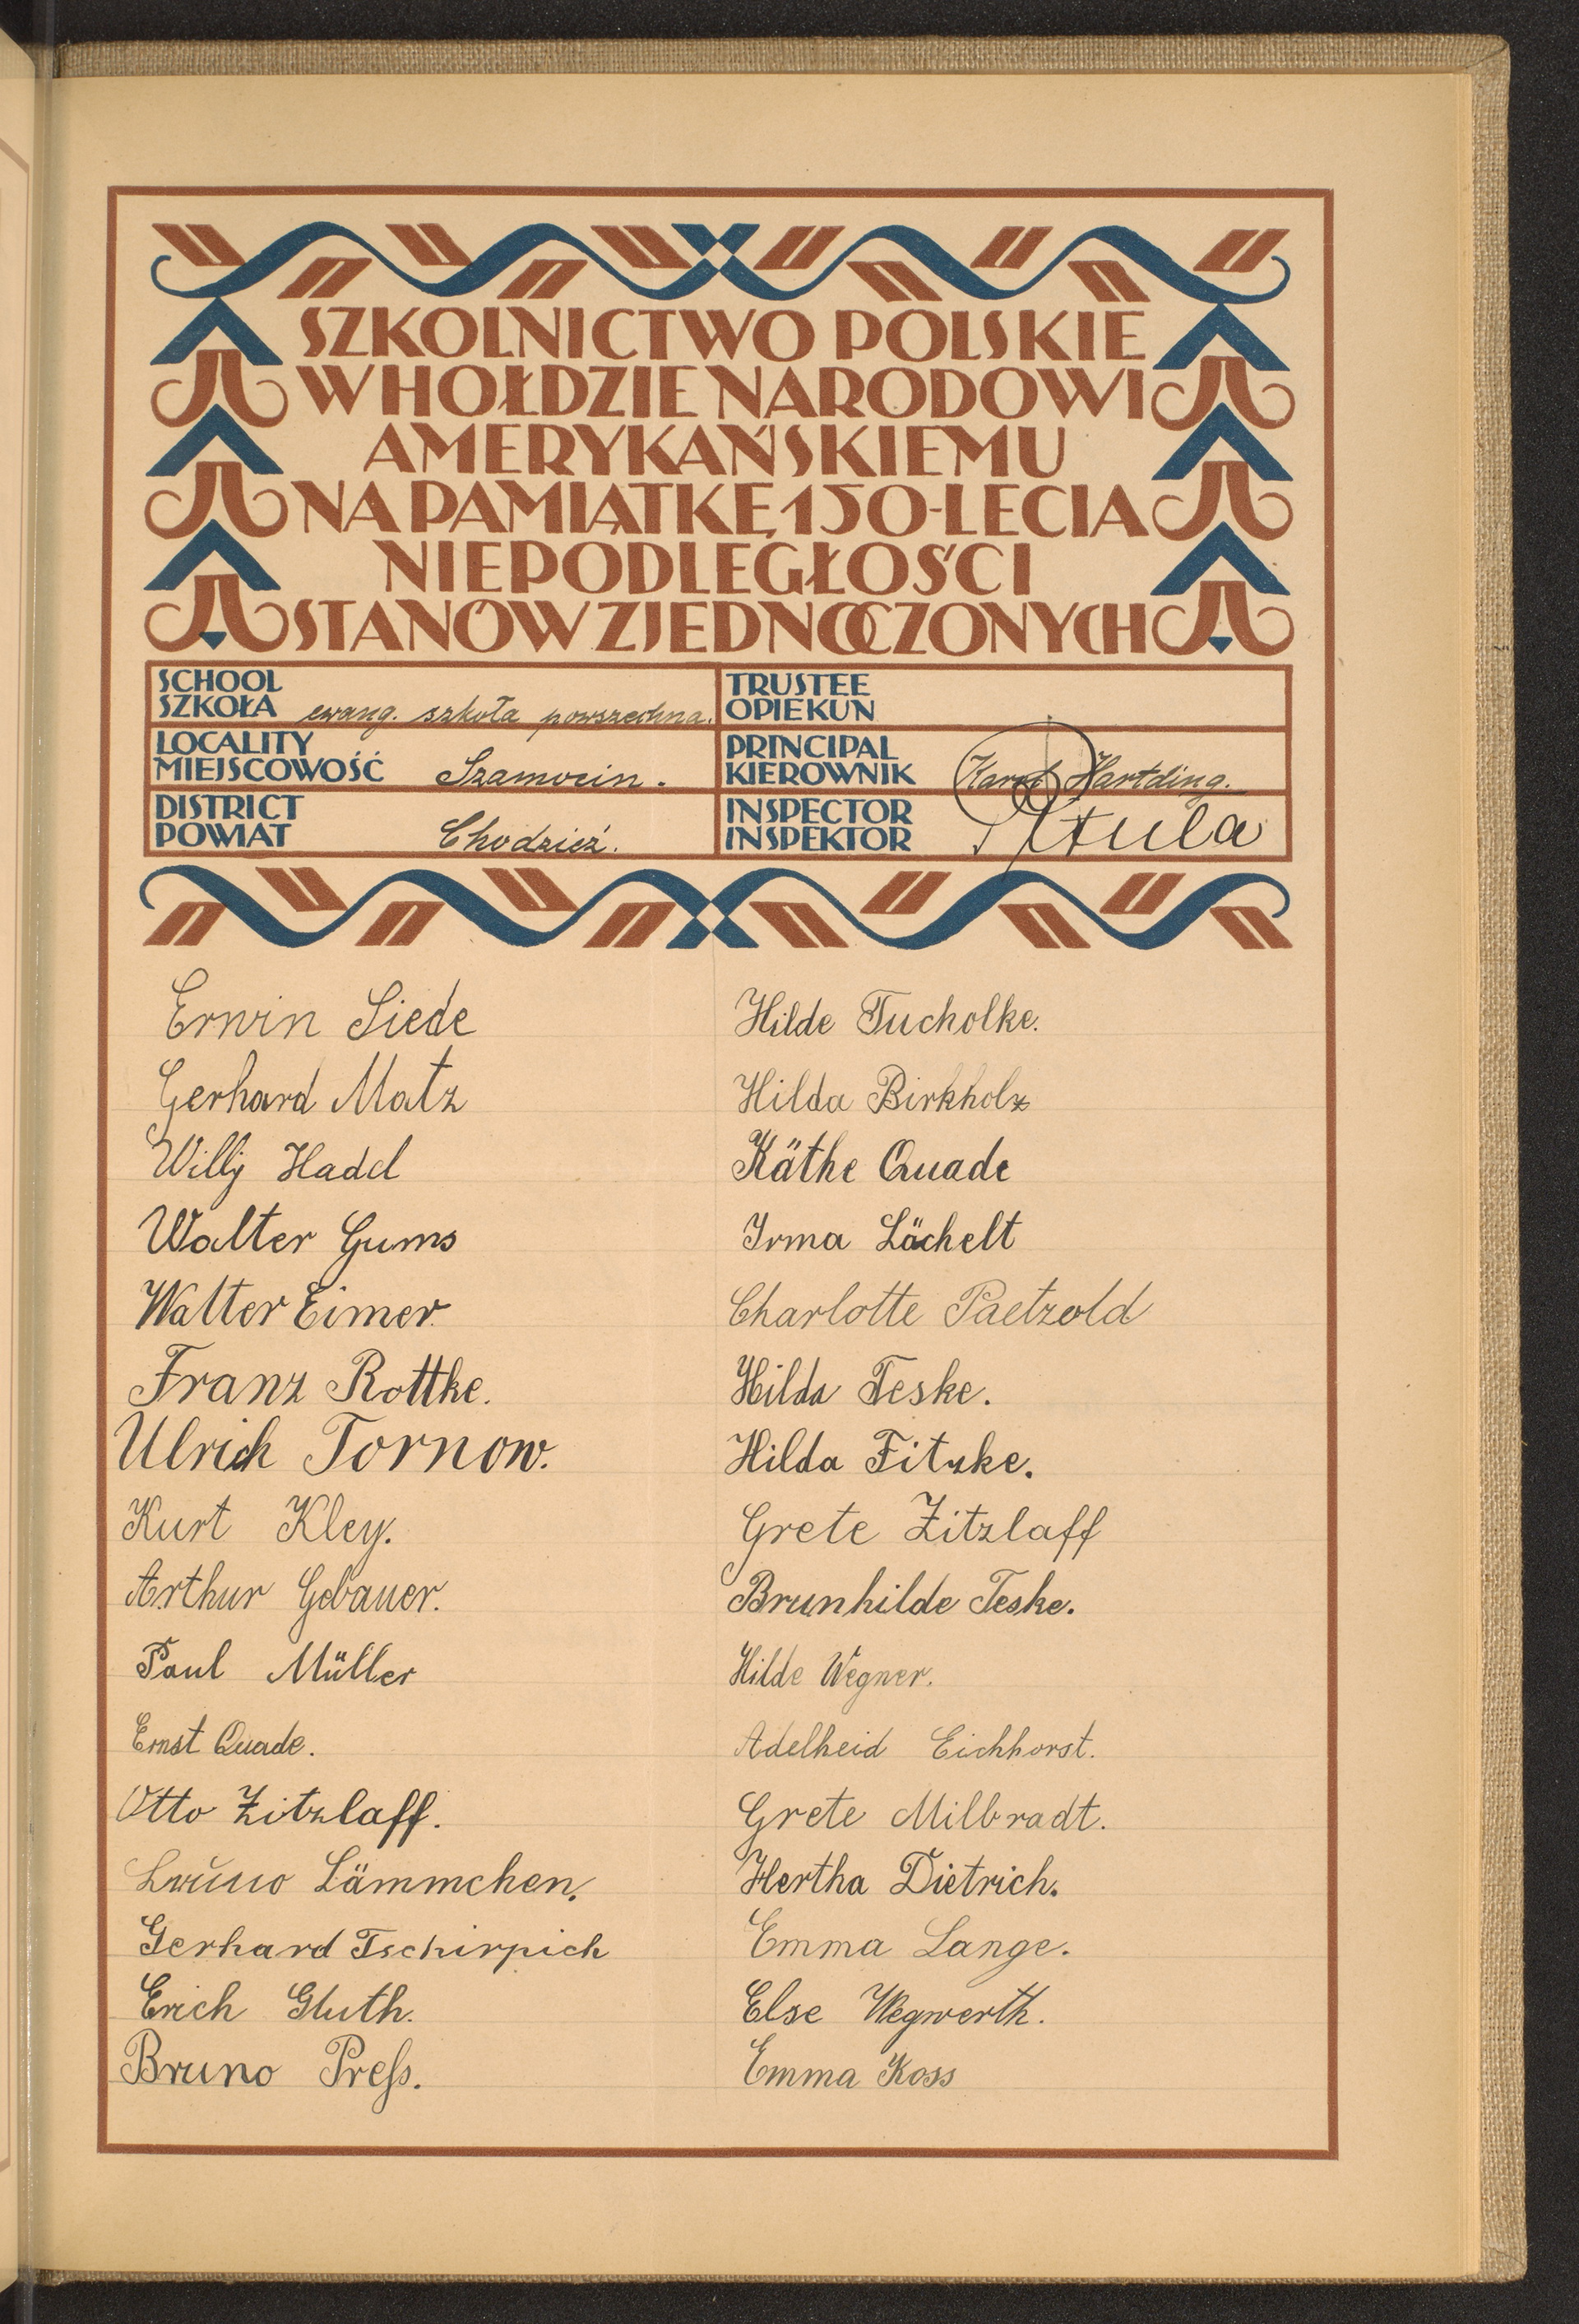 SZKOLNICTWO POLSKIE
W HOŁDZIE NARODOWI
AMERYKAŃSKIEMU
NA PAMIĄTKĘ 150-LECIA
NIEPODLEGŁOŚCI
STANÓW ZJEDNOCZONYCH
SCHOOL
SZKOŁA ewang. szkoła powszechna.
LOCALITY
MIEJSCOWOŚĆ Szamocin.
DISTRICT
POWIAT Chodzież.
TRUSTEE
OPIEKUN
PRINCIPAL
KIEROWNIK Karol Hartding.
INSPECTOR
INSPEKTOR
Erwin Siede
Gerhard Matz
Willy Hadel
Walter Gums
Walter Eimer
Franz Rottke.
Ulrich Tornow.
Kurt Kley.
Arthur Gebauer.
Paul Müller
Ernst Quade.
Otto Zitzlaff.
Lämmchen.
Gerhard Tschirpich
Erich Gluth.
Bruno Preſs.
Hilde Tucholke.
Hilda Birkholz
Käthe Quade
Irma Lächelt
Charlotte Paetzold
Hilda Teske.
Hilda Fitzke.
Grete Zitzlaff
Brunhilde Teske.
Hilde Wegner.
Adelheid Eichhorst.
Grete Milbradt.
Hertha Dietrich.
Emma Lange.
Else Wegwerth.
Emma Koss